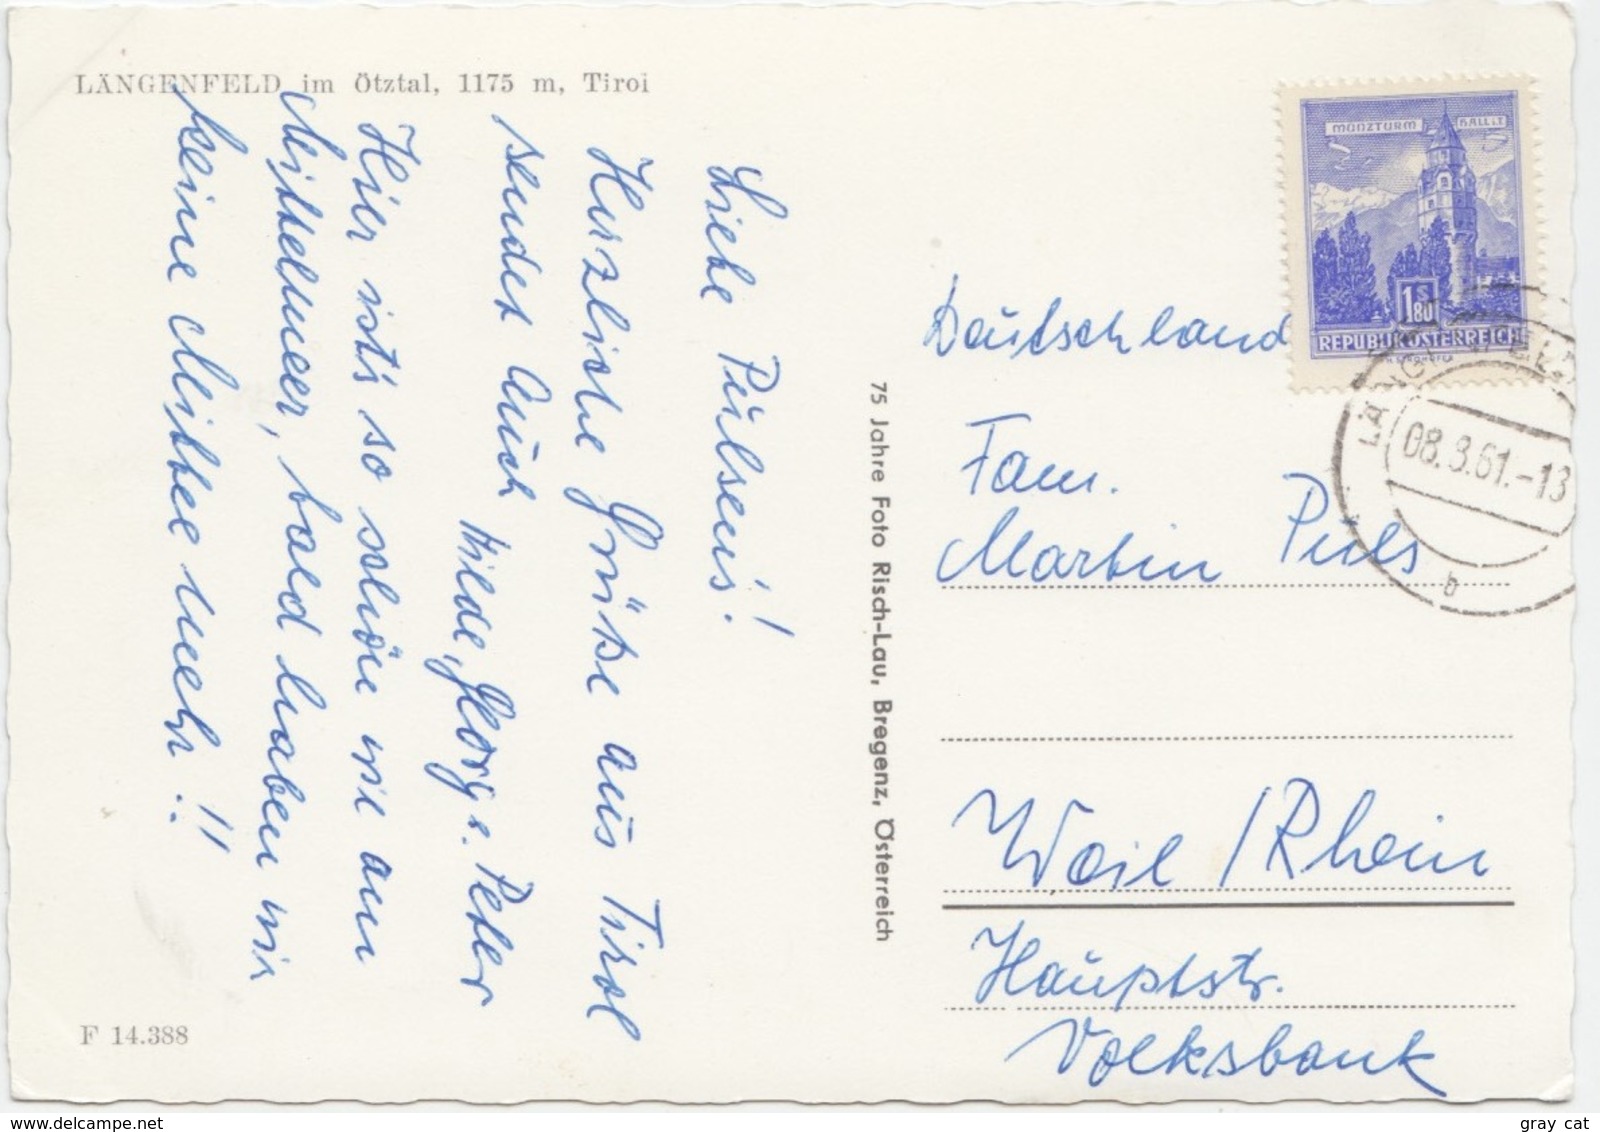 LÄNGENFELD im Ötztal, 1175 m, Tirol
Liebe Pülseni's!
Herzliche Grüße aus Tirol
sendet Euch Hilde, Georg u. Peter
Hier ist's so schön wie am
Mittelmeer, bald haben wir
keine Mittel mehr!!
F 14.388
75 Jahre Foto Risch-Lau, Bregenz, Österreich
MÜNZTURM HALL i.T.
1 S 80
REPUBLIK ÖSTERREICH
LÄNGENFELD
08.3.61.-13
b
Deutschland
Fam.
Martin Puls
Weil / Rhein
Hauptstr.
Volksbank
www.delcampe.net
gray cat